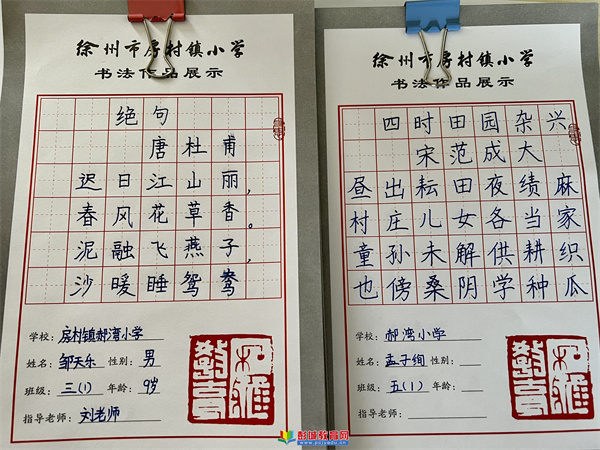 徐州市房村镇小学
书法作品展示
绝句
唐 杜甫
迟日江山丽，
春风花草香。
泥融飞燕子，
沙暖睡鸳鸯
学校：房村镇郝湾小学
姓名：邹天乐 性别：男
班级：三(1) 年龄：9岁
指导老师：刘老师
徐州市房村镇小学
书法作品展示
四时田园杂兴
宋 范成大
昼出耘田夜绩麻
村庄儿女各当家
童孙未解供耕织
也傍桑阴学种瓜
学校：郝湾小学
姓名：孟子绚 性别：
班级：五(1) 年龄：
指导老师：
彭城教育网